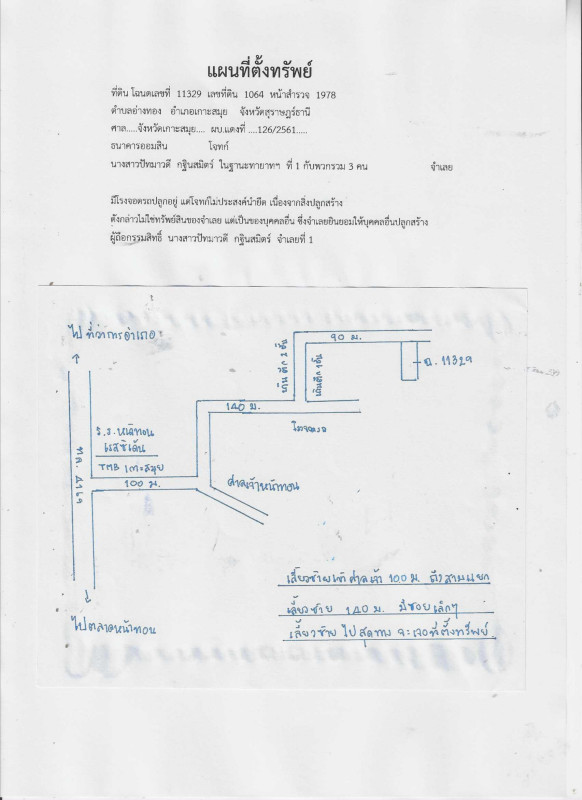 แผนที่ตั้งทรัพย์
ที่ดิน โฉนดเลขที่ 11329 เลขที่ดิน 1064 หน้าสำรวจ 1978
ตำบลอ่างทอง อำเภอเกาะสมุย จังหวัดสุราษฎร์ธานี
ศาล.....จังหวัดเกาะสมุย.... ผบ.แดงที่ ....126/2561.....
ธนาคารออมสิน โจทก์
นางสาวปัทมาวดี กฐินสมิตร์ ในฐานะทายาทฯ ที่ 1 กับพวกรวม 3 คน จำเลย
มีโรงจอดรถปลูกอยู่ แต่โจทก์ไม่ประสงค์นำยึด เนื่องจากสิ่งปลูกสร้าง
ดังกล่าวไม่ใช่ทรัพย์สินของจำเลย แต่เป็นของบุคคลอื่น ซึ่งจำเลยยินยอมให้บุคคลอื่นปลูกสร้าง
ผู้ถือกรรมสิทธิ์ นางสาวปัทมาวดี กฐินสมิตร์ จำเลยที่ 1
ไปที่ว่าการอำเภอ
90 ม.
ฉ. 11329
140 ม.
ร.ร.หน้าทอน
เรสซิเด้น
TMB เกาะสมุย
100 ม.
ศาลเจ้าหน้าทอน
ไปตลาดหน้าทอน
เลี้ยวซ้ายเข้าศาลเจ้า 100 ม. ถึงสามแยก
เลี้ยวซ้าย 140 ม. มีซอยเล็กๆ
เลี้ยวซ้าย ไปสุดทาง จะเจอที่ตั้งทรัพย์